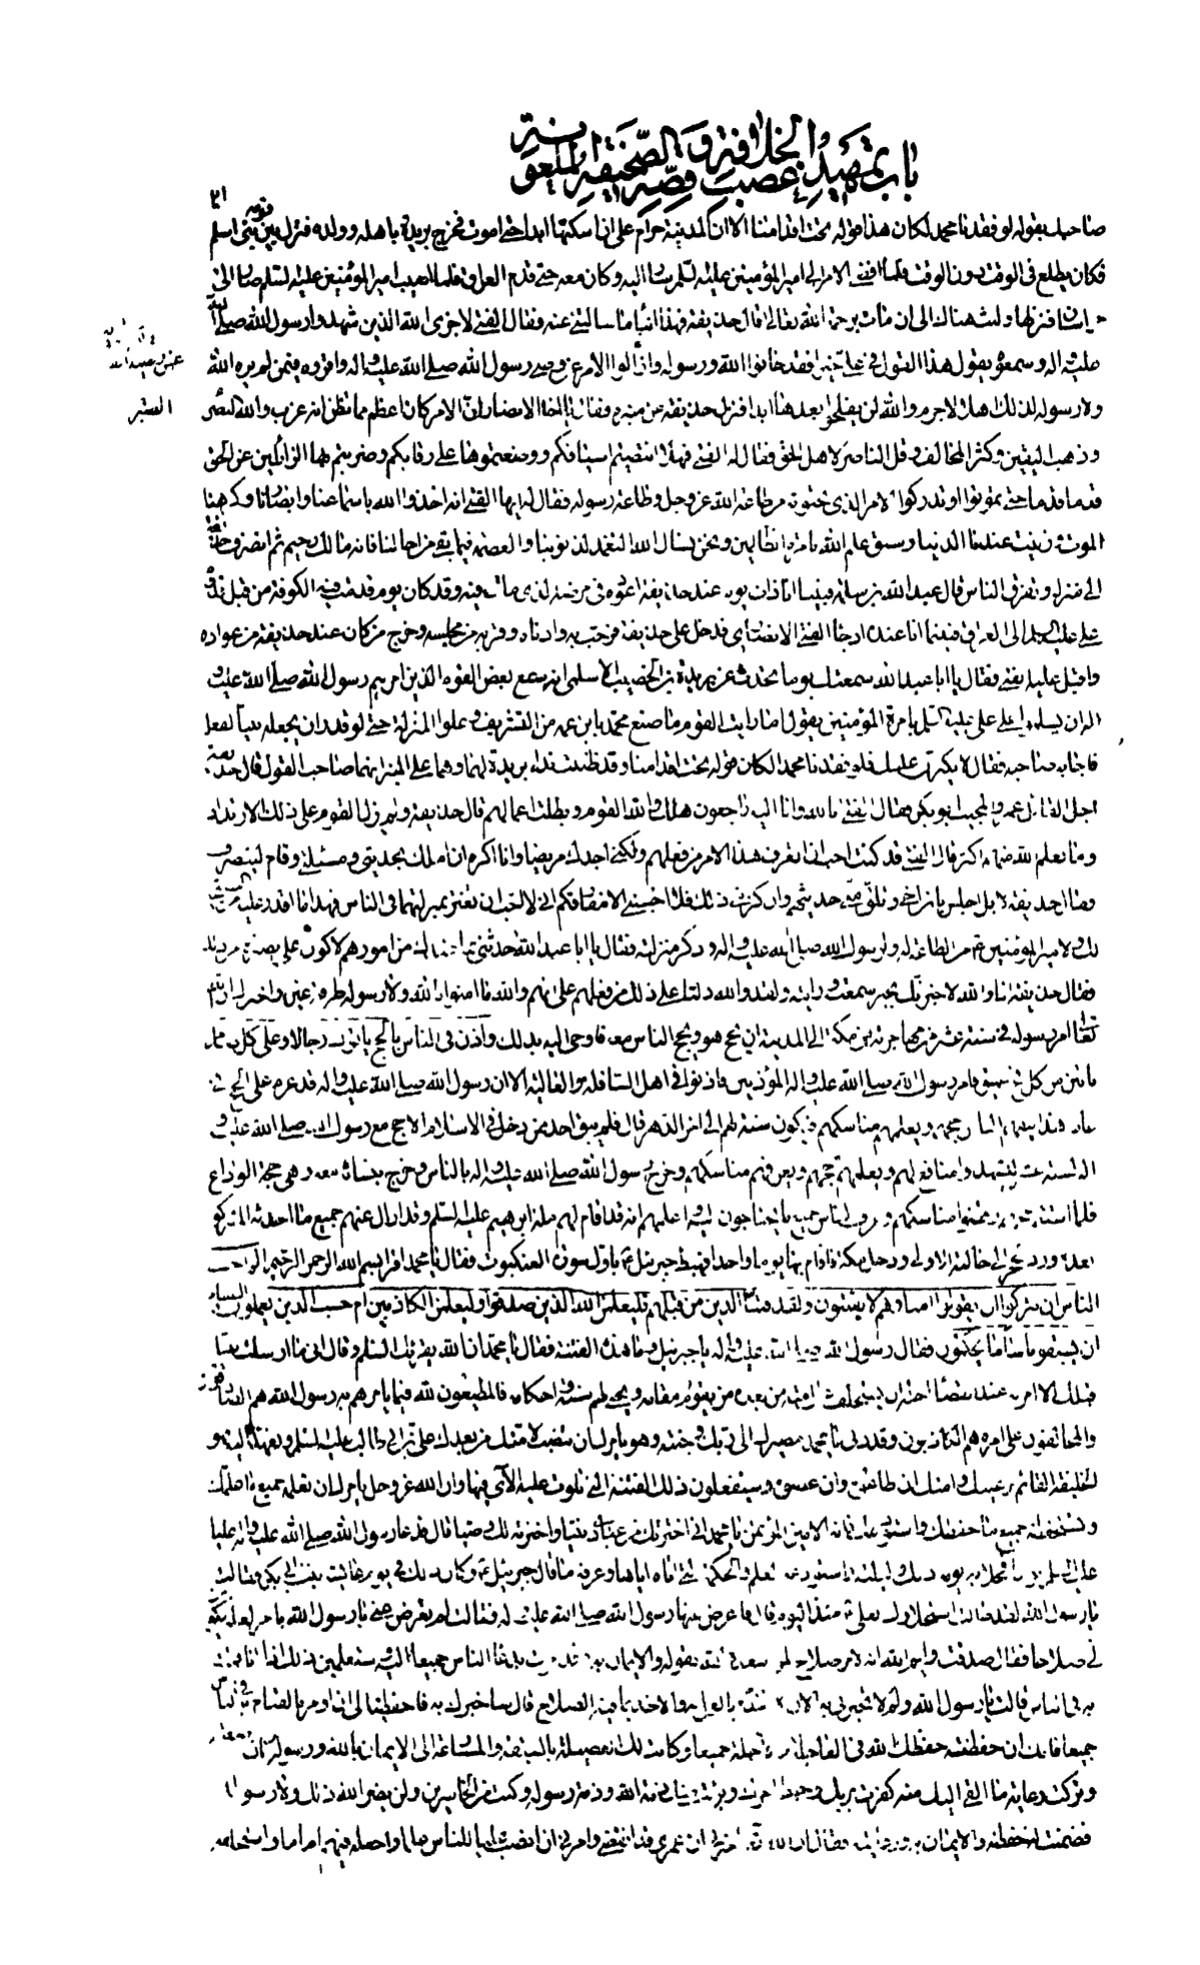 باب تمهيد غصب الخلافة وقصة الصحيفة الملعونة
٢١
صاحبك بقوله لو فقدنا محمدا لكان هذا قوله تحت اقدامنا الا ان المدينة حرام على ان اسكنها ابدا حتى اموت فخرج بريدة باهله وولده فنزل بين قومه بنى اسلم
فكان يطلع فى الوقت دون الوقت فلما افضى الامر الى امير المؤمنين عليه السلم سار اليه وكان معه حتى قدم العراق فلما اصيب امير المؤمنين عليه السلم صار الى
خراسان فنزلها ولبث هناك الى ان مات رحمه الله تعالى قال حذيفة فهذا انباء ما سالتنى عنه فقال الفتى لا جزى الله الذين شهدوا رسول الله صلى الله
عليه واله وسمعوه يقول هذا القول فى على خيرا فقد خانوا الله ورسوله وازالوا الامر عن وصى رسول الله صلى الله عليه واله واقروه فيمن لم يره الله
ولا رسوله لذلك اهلا لا جرم والله لن يفلحوا بعدها ابدا فنزل حذيفة من منبره فقال يا اخا الانصار ان الامر كان اعظم مما تظن انه عزب والله البصر
وذهب اليقين وكثر المخالف وقل الناصر لاهل الحق فقال له الفتى فهلا انتضيتم اسيافكم ووضعتموها على رقابكم وضربتم بها الزائلين عن الحق
قدما قدما حتى تموتوا او تدركوا الامر الذى تحبونه من طاعة الله عز وجل وطاعة رسوله فقال له ايها الفتى انه اخذ والله باسماعنا وابصارنا وكرهنا
الموت وزينت عندنا الدنيا وسبق علم الله بامرة الظالمين ونحن نسال الله التغمد لذنوبنا والعصمة فيما بقى من اجالنا فانه مالك رحيم ثم انصرف حذيفة
الى منزله وتفرق الناس قال عبد الله بن سلمة فبينما انا ذات يوم عند حذيفة اعوده فى مرضه الذى مات فيه وقد كان يوم قدمت فيه الكوفة من قبل قدوم
على عليه السلم الى العراق فبينما انا عنده اذ جاء الفتى الانصارى فدخل على حذيفة فرحب به وادناه وقربه من مجلسه وخرج من كان عند حذيفة من عواده
واقبل عليه الفتى فقال يا ابا عبد الله سمعتك يوما تحدث عن بريدة بن الحصيب الاسلمى انه سمع بعض القوم الذين امرهم رسول الله صلى الله عليه و
اله ان يسلموا على على عليه السلم بامرة المؤمنين يقول اما رايت القوم ما صنع محمد بابن عمه من التشريف وعلو المنزلة حتى لو قدر ان يجعله نبيا لفعل
فاجابه صاحبه فقال لا يكبرن عليك فلو فقدنا محمدا لكان قوله تحت اقدامنا وقد ظننت نداء بريدة لهما وهما على المنبر انهما صاحبا القول قال حذيفة
اجل القائل عمر والمجيب ابو بكر فقال الفتى انا لله وانا اليه راجعون هلك والله القوم وبطلت اعمالهم قال حذيفة ولم يزل القوم على ذلك الارتداد
وما يعلم الله منهم اكثر قال الفتى قد كنت احب ان اتعرف هذا الامر من فعلهم ولكنى اجدك مريضا وانا اكره ان املك بحديثى ومسئلتى وقام لينصرف
فقال حذيفة لا بل اجلس يا ابن اخى وتلق منى حديثهم وان كربنى ذلك فلا احسبنى الا مفارقكم انى لا احب ان تغتر بمنزلتهما فى الناس فهذا ما اقدر عليه من النصيحة
لك ولامير المؤمنين من الطاعة له ولرسول الله صلى الله عليه واله وذكر منزلته فقال يا ابا عبد الله حدثنى بما عندك من امورهم لاكون على بصيرة من ذلك
فقال حذيفة اذا والله لاخبرنك بخبر سمعته ورايته ولقد والله دلنا على ذلك من فعلهم على انهم والله ما امنوا بالله ولا رسوله طرفة عين واخبرك ان الله
تعالى امر رسوله فى سنة عشر من مهاجرته من مكة الى المدينة ان يحج هو ويحج الناس معه فاوحى اليه بذلك واذن فى الناس بالحج ياتوك رجالا وعلى كل ضامر
ياتين من كل فج عميق فامر رسول الله صلى الله عليه واله المؤذنين فاذنوا فى اهل السافلة والعالية الا ان رسول الله صلى الله عليه واله قد عزم على الحج فى
عامه هذا ليفهم الناس حجهم ويعلمهم مناسكهم فيكون سنة لهم الى اخر الدهر قال فلم يبق احد ممن دخل فى الاسلام الا حج مع رسول الله صلى الله عليه و
اله لسنة عشر ليشهدوا منافع لهم ويعلمهم حجهم ويعرفهم مناسكهم وخرج رسول الله صلى الله عليه واله بالناس وخرج بنسائه معه وهى حجة الوداع
فلما استتم حجهم وقضوا مناسكهم وعرف الناس جميع ما يحتاجون اليه واعلمهم انه قد اقام لهم ملة ابرهيم عليه السلم وقد ازال عنهم جميع ما احدثه المشركون
بعده ورد الحج الى حالته الاولى ودخل مكة فاقام بها يوما واحدا فهبط جبرئيل باول سورة العنكبوت فقال يا محمد اقرا بسم الله الرحمن الرحيم الم احسب
الناس ان يتركوا ان يقولوا امنا وهم لا يفتنون ولقد فتنا الذين من قبلهم فليعلمن الله الذين صدقوا وليعلمن الكاذبين ام حسب الذين يعملون السيئات
ان يسبقونا ساء ما يحكمون فقال رسول الله صلى الله عليه واله يا جبرئيل وما هذه الفتنة فقال يا محمد ان الله يقرئك السلم ويقول انى ما ارسلت نبيا
قبلك الا امرته عند انقضاء اجله ان يستخلف على امته من بعده من يقوم مقامه ويحيى لهم سنته واحكامه فالمطيعون لله فيما يامرهم به رسول الله هم الصادقون
والمخالفون على امره هم الكاذبون وقد دنى يا محمد مصيرك الى ربك وجنته وهو يامرك ان تنصب لامتك من بعدك على بن ابى طالب عليه السلم وتعهد اليه فهو
الخليفة القائم برعيتك وامتك ان اطاعوه وان عصوه وسيفعلون ذلك وهى الفتنة التى تلوت عليك الآى فيها وان الله عز وجل يامرك ان تعلمه جميع ما علمك
وتستحفظه جميع ما حفظك واستودعك فانه الامين المؤتمن يا محمد انى اخترتك من عبادى نبيا واخترته لك وصيا قال فدعا رسول الله صلى الله عليه واله عليا
عليه السلم يوما فخلا به يوم ذلك وليلته واستودعه العلم والحكمة التى اتاه اياها وعرفه ما قال جبرئيل وكان ذلك فى يوم عائشة بنت ابى بكر فقالت
يا رسول الله لقد طال استخلاؤك بعلى منذ اليوم قال فاعرض عنها رسول الله صلى الله عليه واله فقالت لم تعرض عنى يا رسول الله بامر لعله يكون
لى صلاحا فقال صدقت وايم الله انه لامر صلاح لمن اسعده الله بقبوله والايمان به وقد امرت بدعاء الناس جميعا اليه وستعلمين ذلك اذا انا قمت
به فى الناس قالت يا رسول الله ولم لا تخبرنى به الان لاتقدم بالعمل به والاخذ بما فيه الصلاح قال ساخبرك به فاحفظيه الى ان اومر بالقيام به فى الناس
جميعا فانك ان حفظتيه حفظك الله فى العاجلة والآجلة جميعا وكانت لك الفضيلة بالسبقة والمسارعة الى الايمان بالله ورسوله وان اضعتيه
وتركت رعاية ما القى اليك منه كفرت بربك وحبط اجرك وبرئت منك ذمة الله وذمة رسوله وكنت من الخاسرين ولن يضر الله ذلك ولا رسوله
فضمنت له حفظه والايمان به ورعايته فقال ان الله تعالى اخبرنى ان عمرى قد انقضى وامرنى ان انصب عليا للناس علما واجعله فيهم اماما واستخلفه